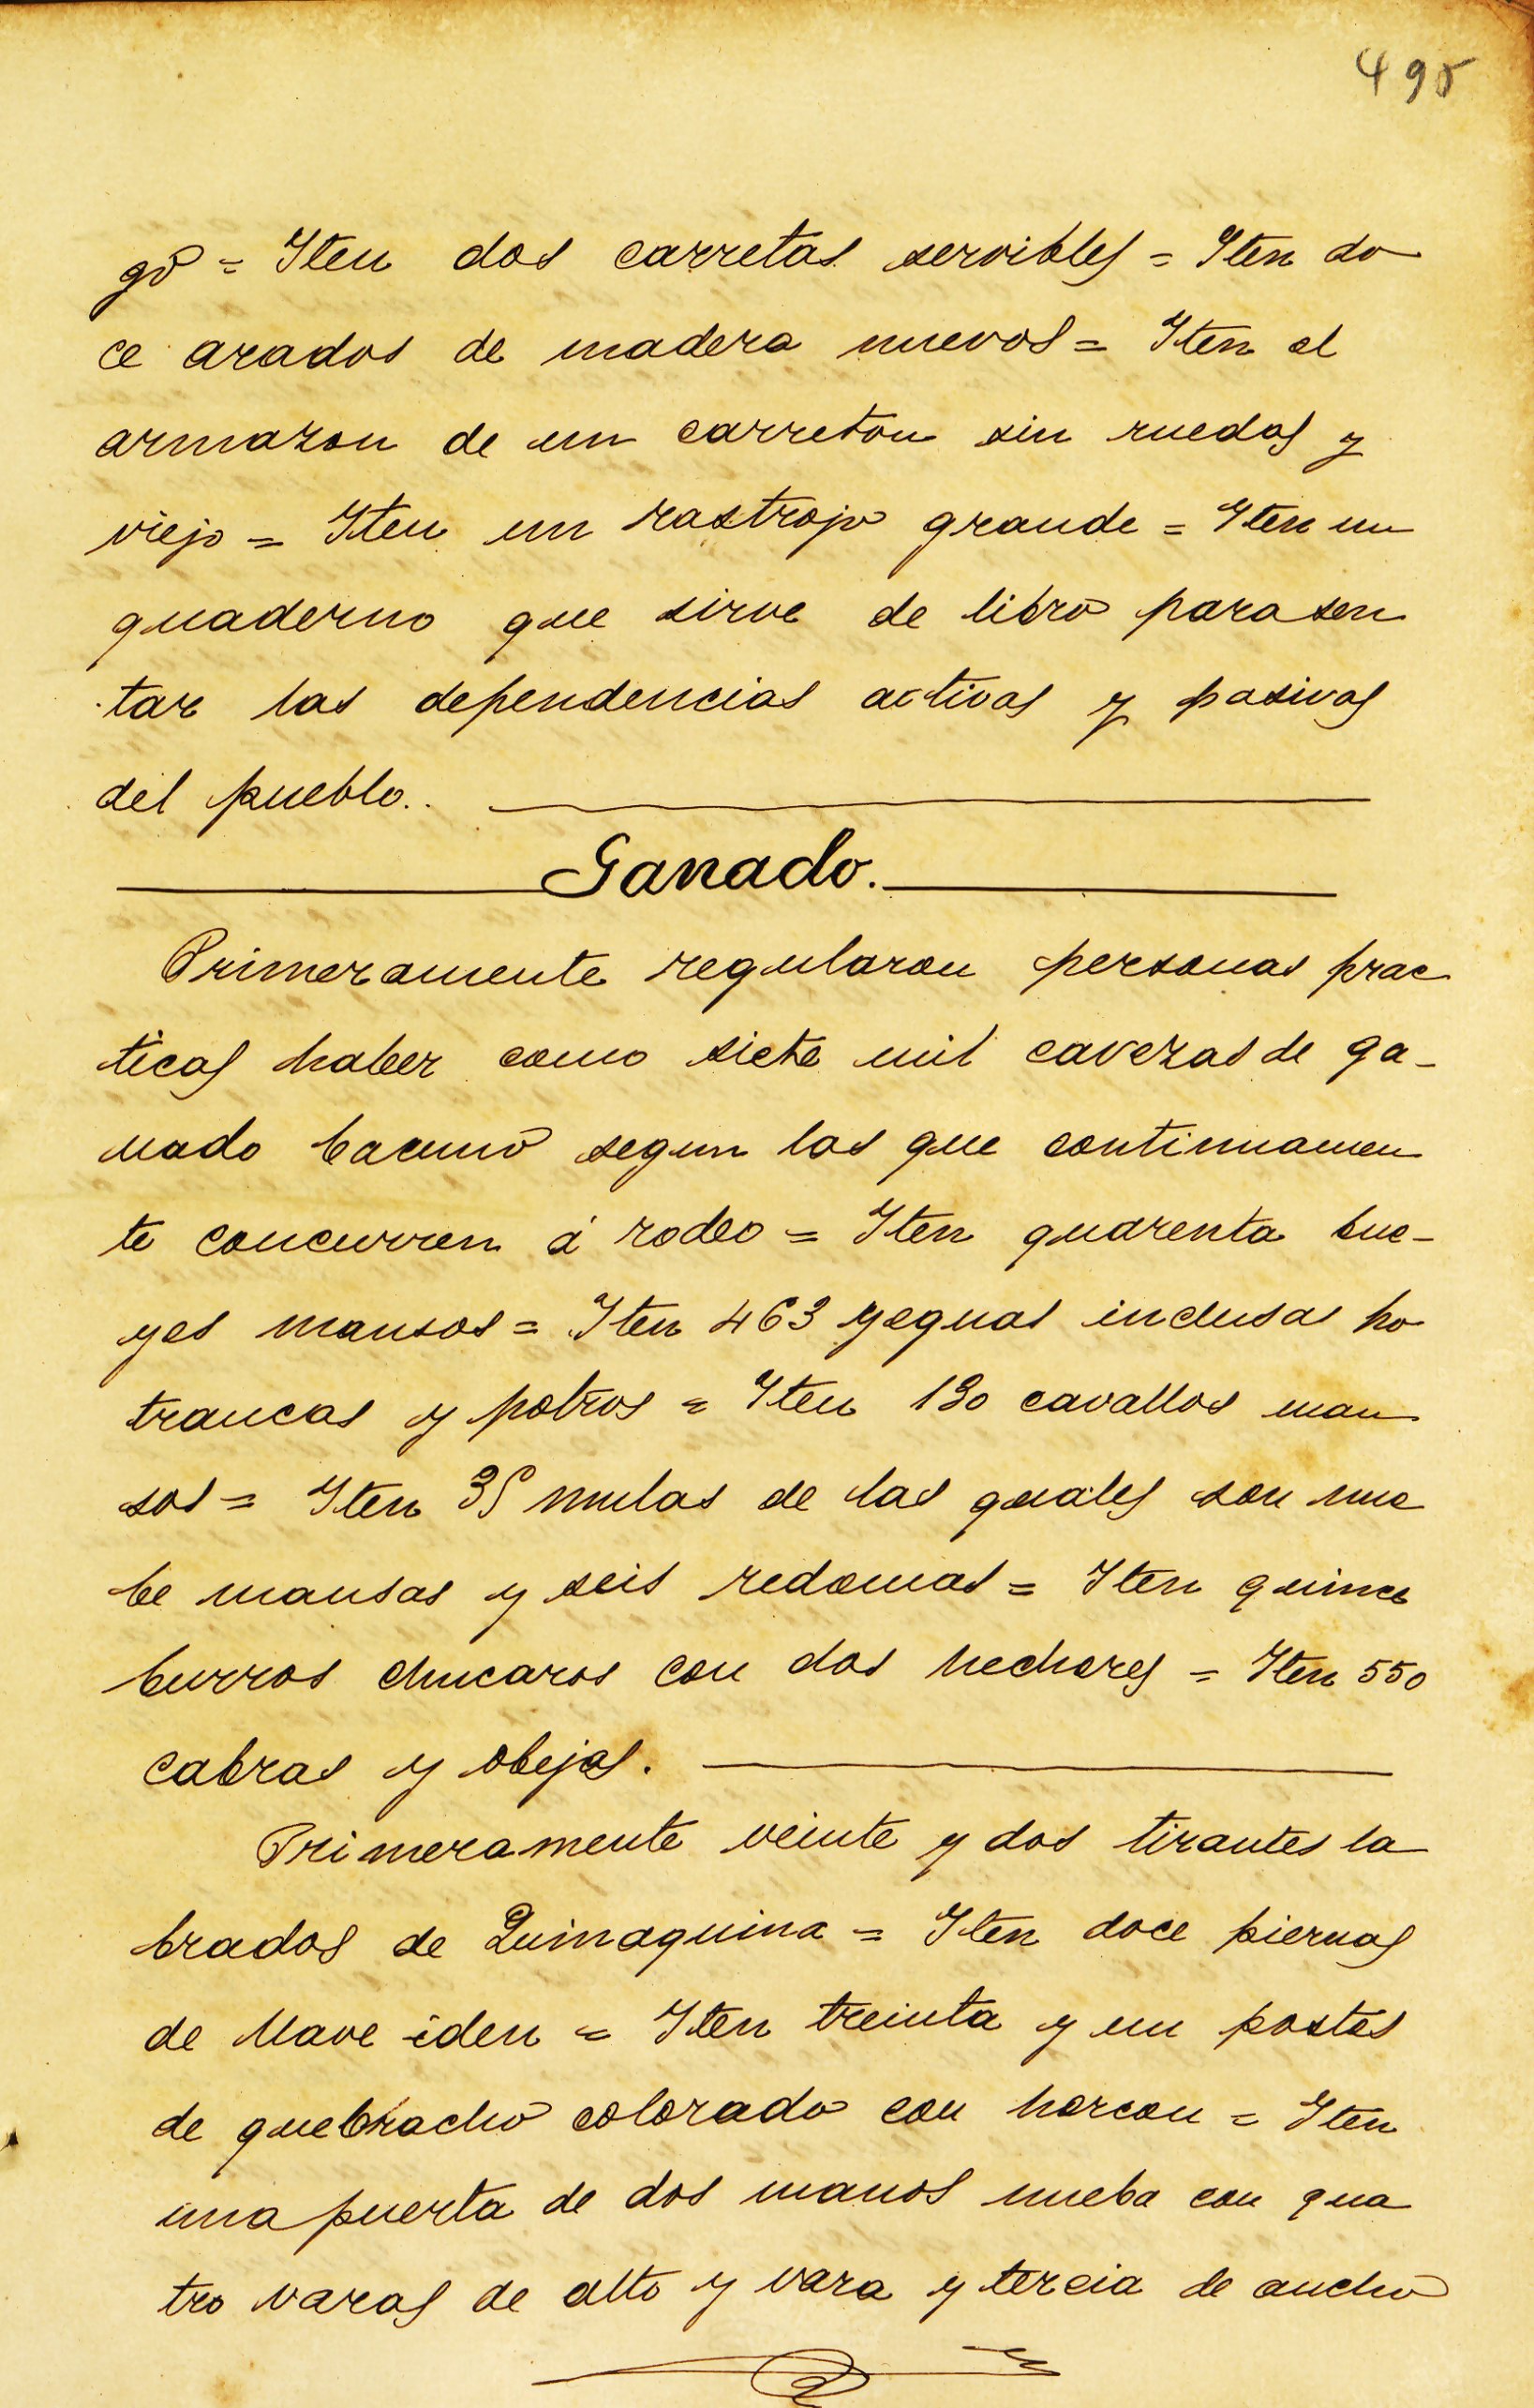 495
go = Iten dos carretas servibles = Iten do
ce arados de madera nuevos = Iten el
armazon de un carreton sin ruedas y
viejo = Iten un rastrojo grande = Iten un
quaderno que sirve de libro para sen
tar las dependencias activas y pasivas
del pueblo..
Ganado.
Primeramente regularon personas prac
ticas haber como siete mil cavezas de ga-
nado bacuno segun las que continuamen
te concurren á rodeo = Iten quarenta bue-
yes mansos = Iten 463 yeguas inclusas po
trancas y potros = Iten 130 cavallos man
sos = Iten 35 mulas de las quales son nue
be mansas y seis redomas = Iten quince
burros chucaros con dos hechores = Iten 550
cabras y obejas.
Primeramente veinte y dos tirantes la
brados de Quimaquina = Iten doce piernas
de llave iden = Iten treinta y un postes
de quebracho colorado con horcon = Iten
una puerta de dos manos nueba con qua
tro varas de alto y vara y tercia de ancho